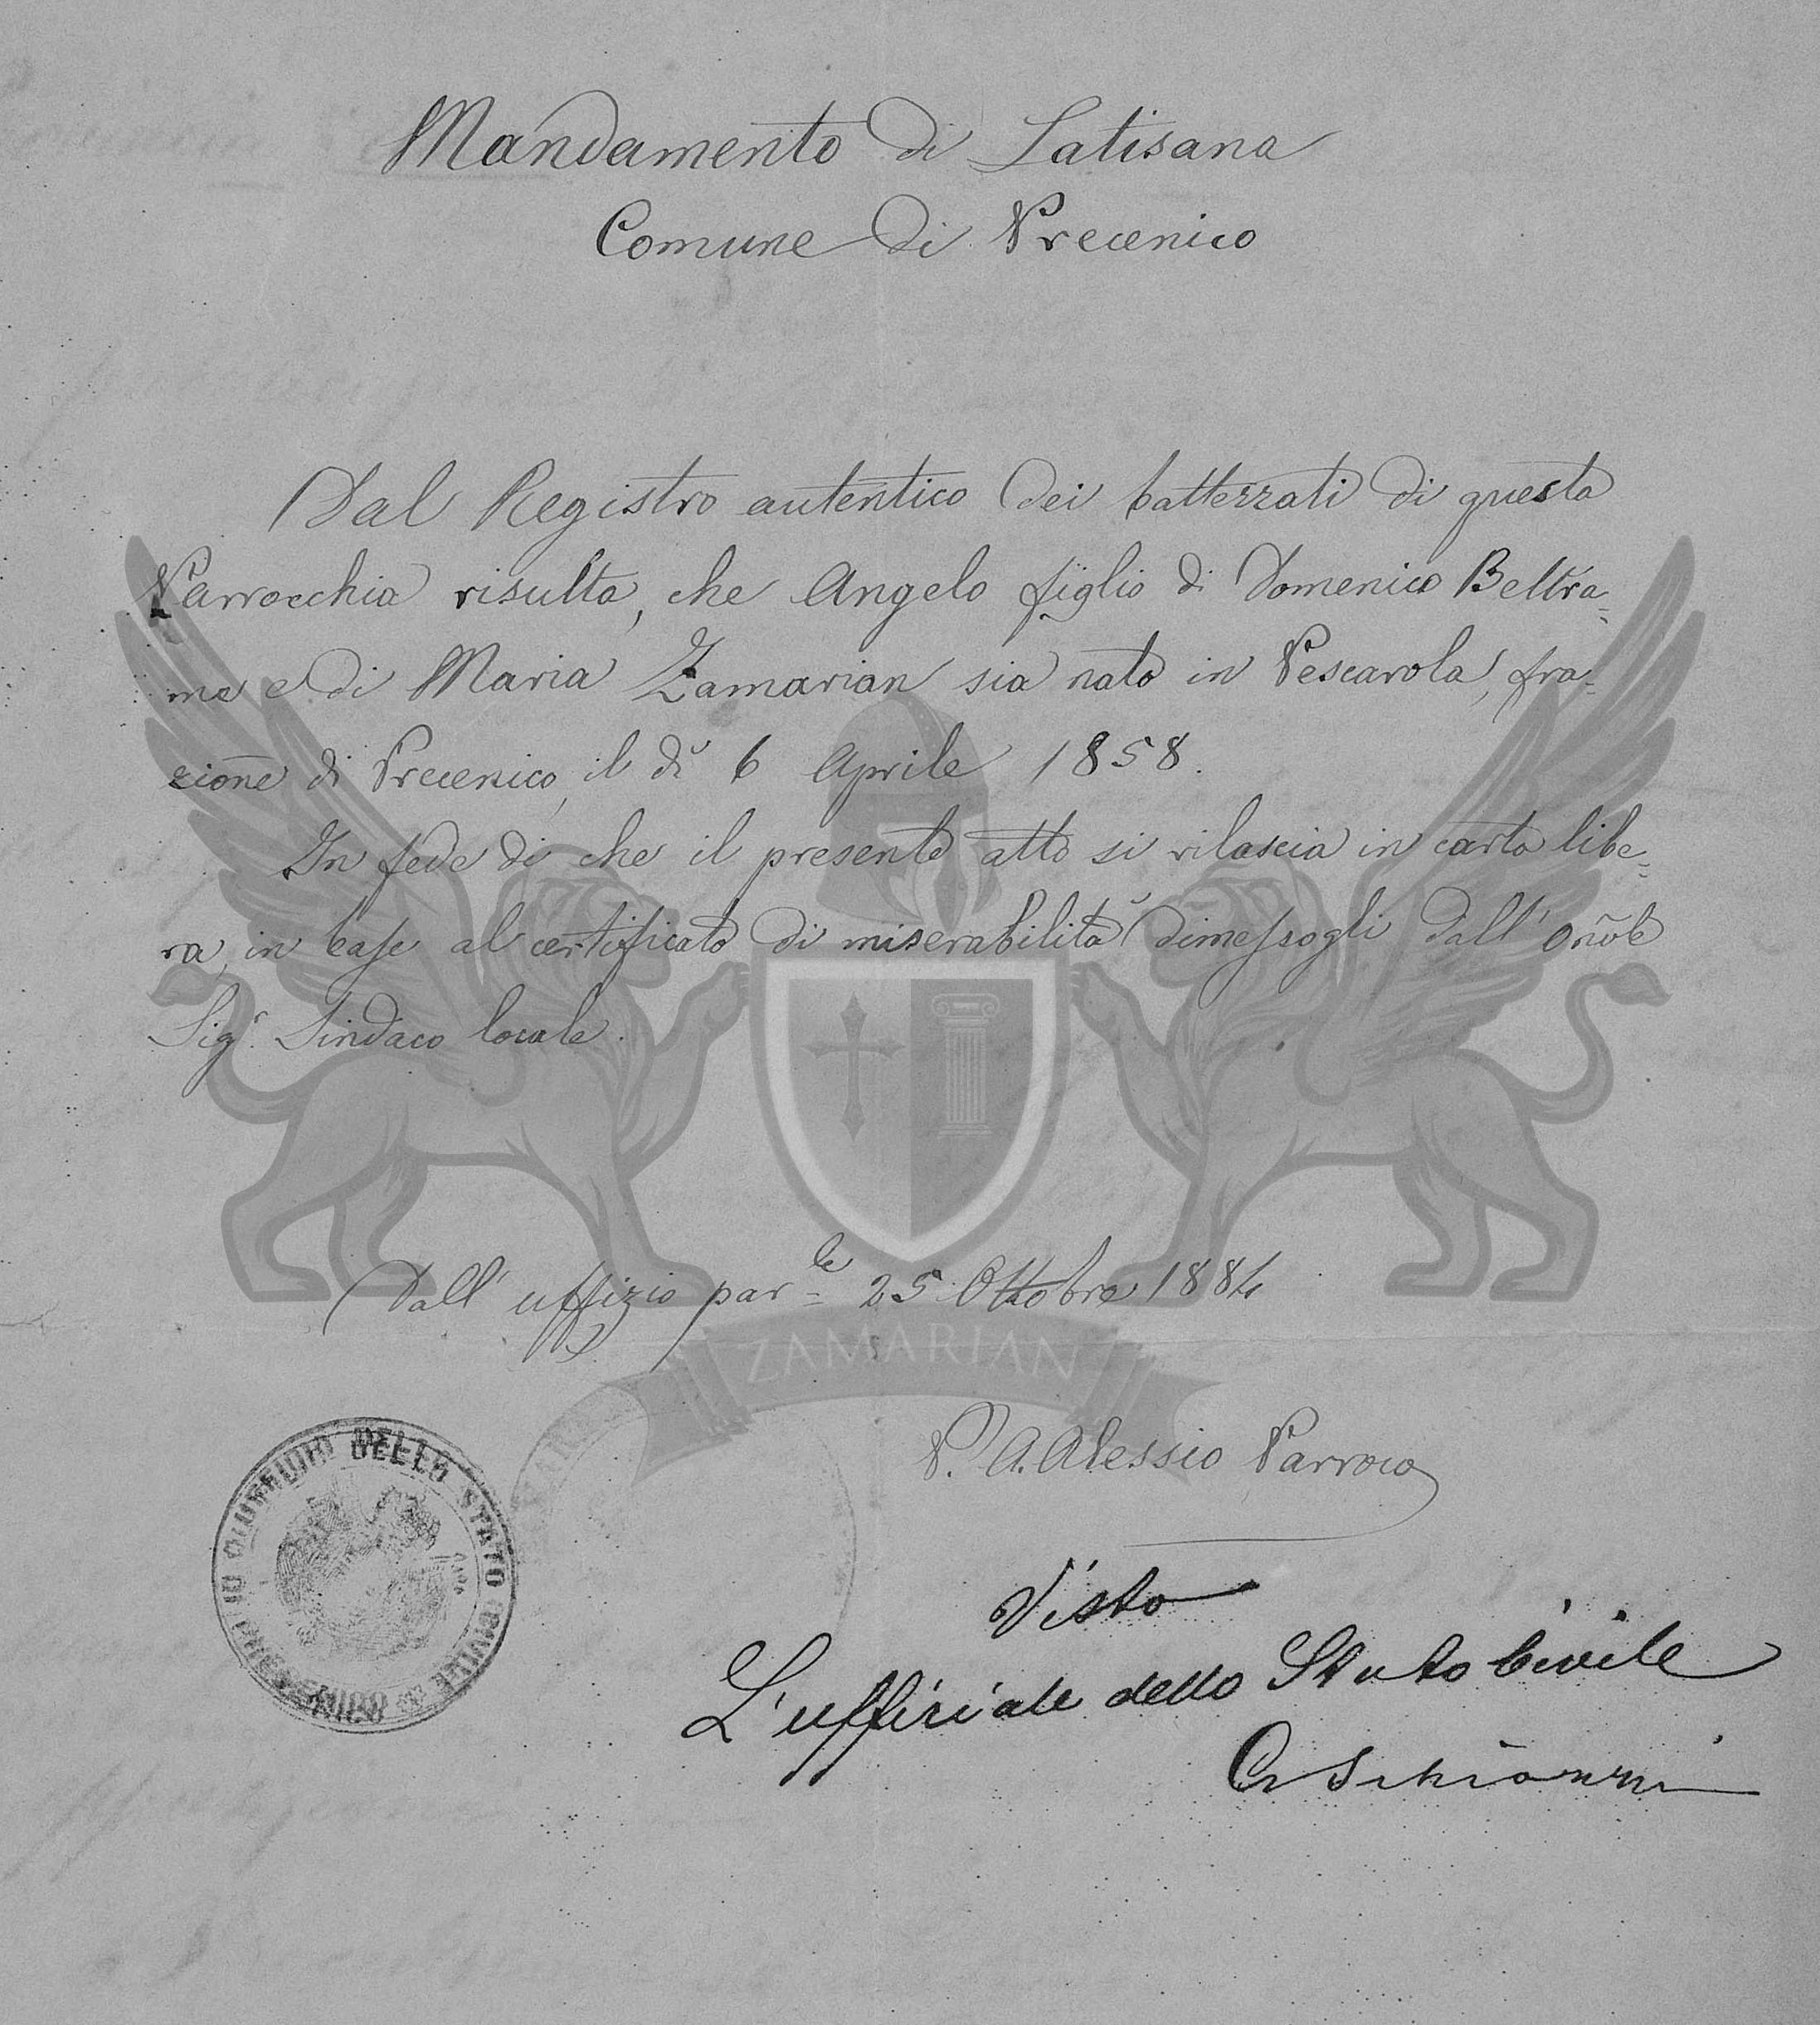 Mandamento di Latisana
Comune di Precenico
Dal Registro autentico dei battezzati di questa
Parrocchia risulta, che Angelo figlio di Domenico Beltra=
me e di Maria Zamarian sia nato in Pescarola, fra=
zione di Precenico, il dì 6 Aprile 1858.
In fede di che il presente atto si rilascia in carta libe=
ra, in base al certificato di miserabilità dimessogli dall' Onõle
Sigr. Sindaco locale.
Dall' uffizio par=le 25 Ottobre 1884
ZAMARIAN
P. A. Alessio Parroco
UFFICIO DELLO STATO CIVILE
Visto
L'uffiziale dello Stato Civile